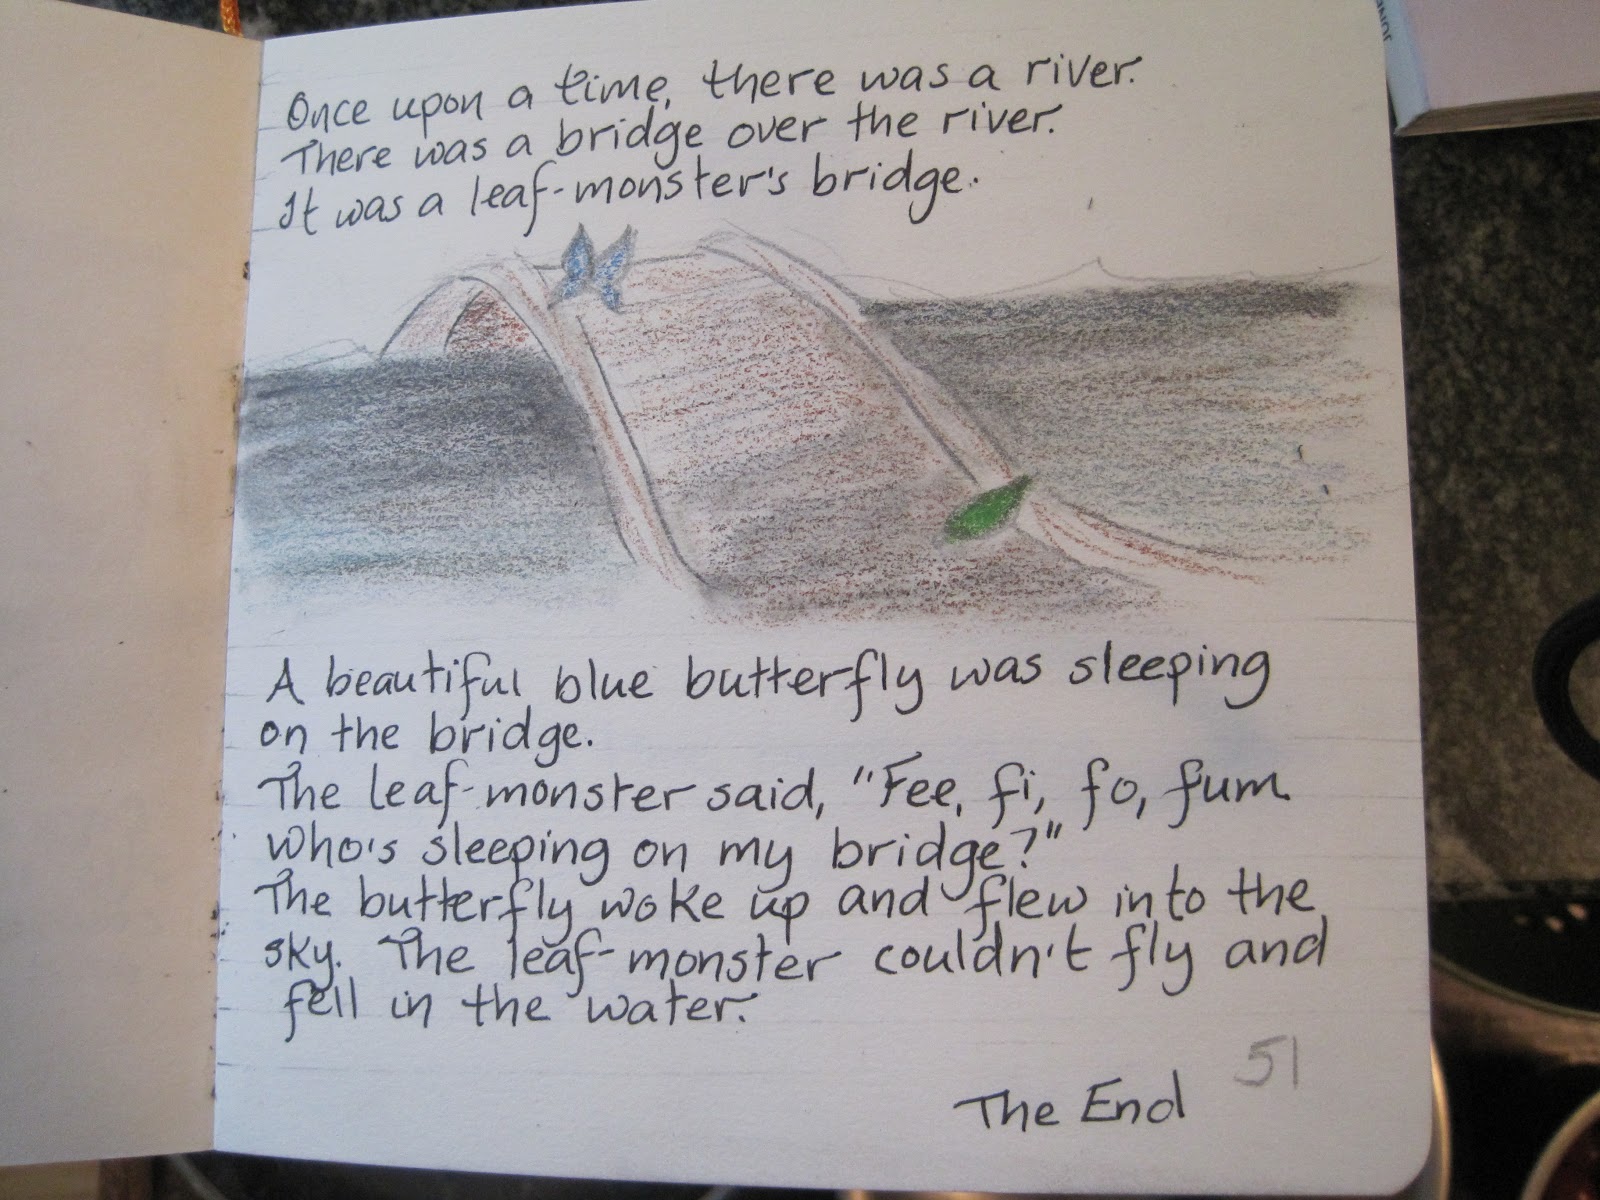 Once upon a time, there was a river.
There was a bridge over the river.
It was a leaf-monster's bridge.
A beautiful blue butterfly was sleeping
on the bridge.
The leaf-monster said, "Fee, fi, fo, fum
who's sleeping on my bridge?"
The butterfly woke up and flew into the
sky. The leaf-monster couldn't fly and
fell in the water.
The End
51